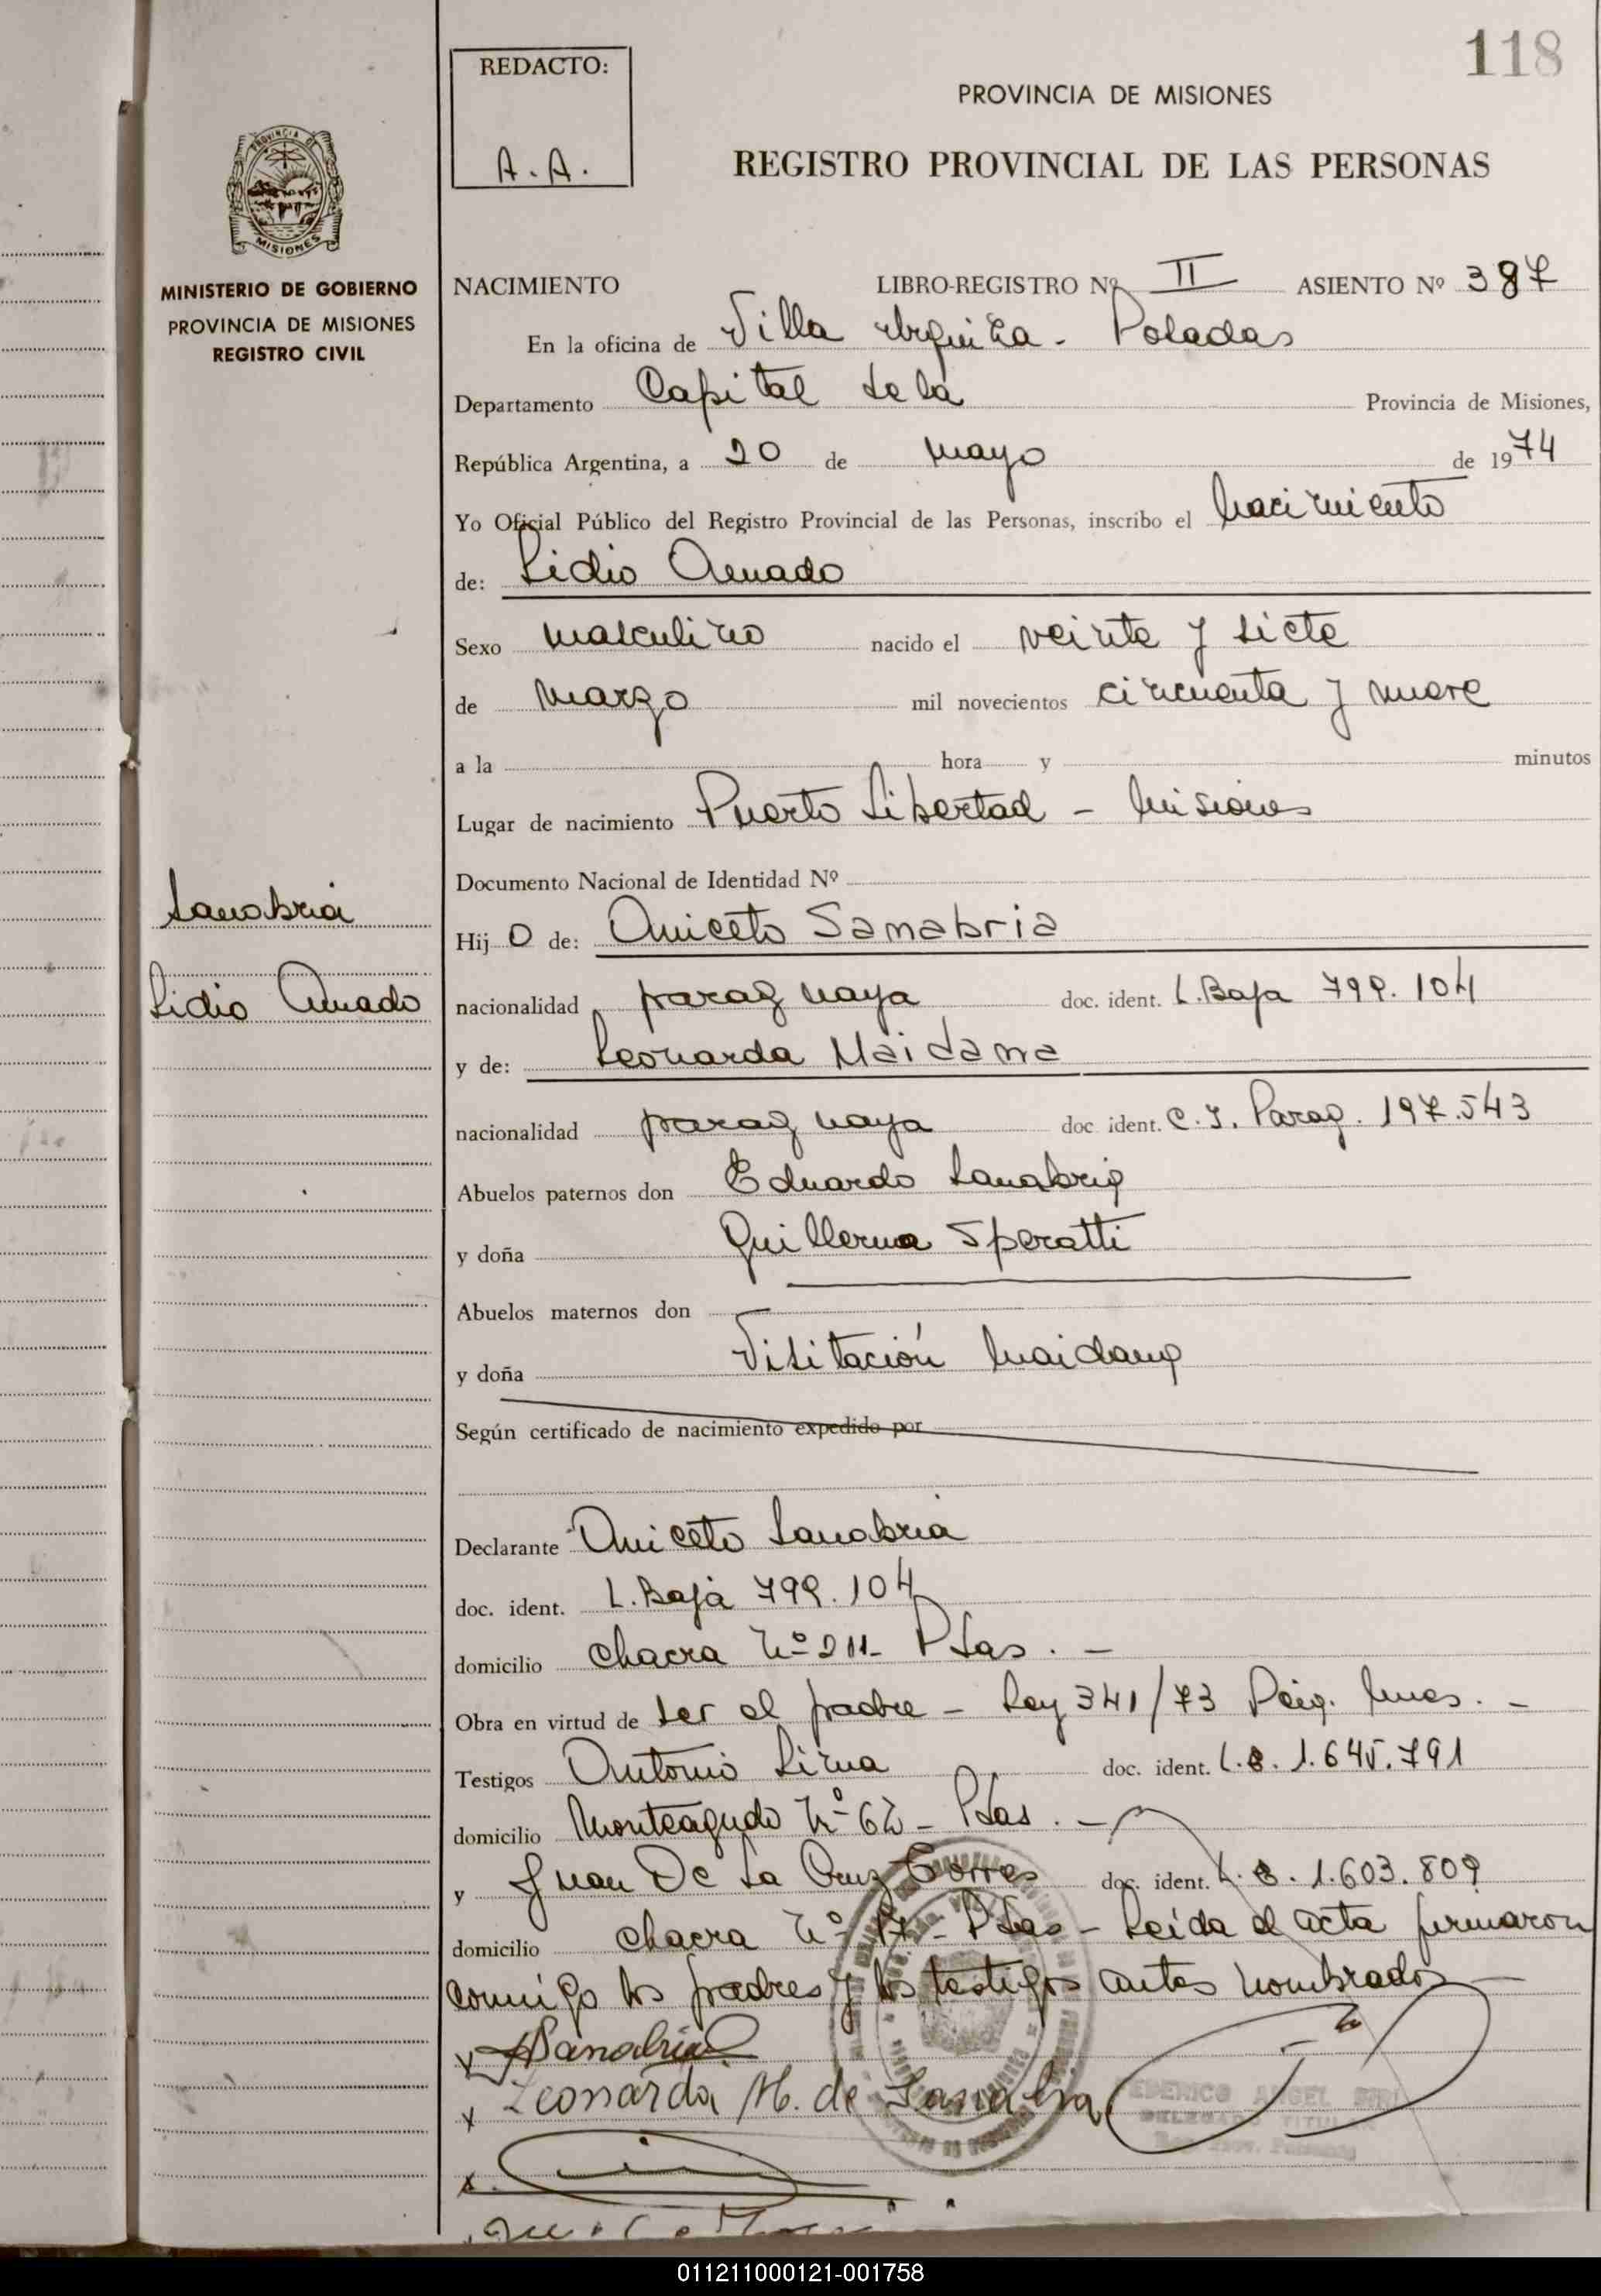 118
REDACTO:
A.A.
PROVINCIA DE MISIONES
REGISTRO PROVINCIAL DE LAS PERSONAS
MISIONES
MINISTERIO DE GOBIERNO
PROVINCIA DE MISIONES
REGISTRO CIVIL
NACIMIENTO LIBRO-REGISTRO Nº II ASIENTO Nº 387
En la oficina de Villa Urquiza - Posadas
Departamento Capital de la Provincia de Misiones,
República Argentina, a 20 de mayo de 1974
Yo Oficial Público del Registro Provincial de las Personas, inscribo el nacimiento
de: Lidio Amado
Sexo masculino nacido el veinte y siete
de marzo mil novecientos cincuenta y nueve
a la hora y minutos
Lugar de nacimiento Puerto Libertad - Misiones
Documento Nacional de Identidad Nº
Sanabria
Hijo de: Aniceto Sanabria
Lidio Amado
nacionalidad paraguaya doc. ident. L. Baja 799.104
y de: Leonarda Maidana
nacionalidad paraguaya doc ident. C. I. Parag. 197.543
Abuelos paternos don Eduardo Sanabria
y doña Guillerma Speratti
Abuelos maternos don
y doña Visitación Maidana
Según certificado de nacimiento expedido por
Declarante Aniceto Sanabria
doc. ident. L. Baja 799.104
domicilio Chacra Nº 211- Psas. -
Obra en virtud de ser el padre - Ley 341/73 Mnes. -
Testigos Antonio Lima doc. ident. L.B. 1.645.791
domicilio Monteagudo Nº 62 - Psas. -
y Juan De La Cruz Torres doc. ident. L.B. 1.603.809
domicilio chacra Nº - Psas - Leída el acta firmaron
conmigo los padres y los testigos antes nombrados
x ASanabria
x Leonarda M. de Sanabria
FEDERICO ANGEL
DELEGADO TITULAR
x
011211000121-001758